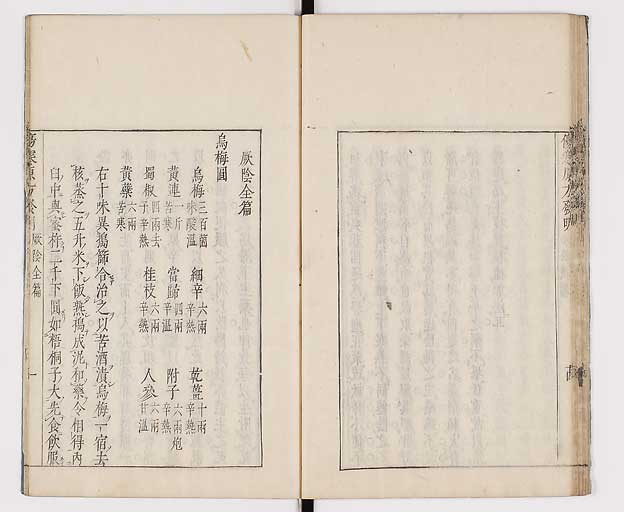 傷寒廣方發明
厥陰全篇
烏梅圓
烏梅三百箇味酸溫 細辛六兩辛熱 乾薑十兩辛熱
黃連一斤苦寒 當歸四兩辛溫 附子六兩炮辛熱
蜀椒四兩去子辛熱 桂枝六兩辛熱 人參六兩甘溫
黃蘗六兩苦寒
右十味異搗篩合治之以苦酒漬烏梅一宿去
核蒸之五升米下飯熟搗成泥和藥令相得內
臼中與蜜杵二千下圓如梧桐子大先食飲服
厥陰全篇
一